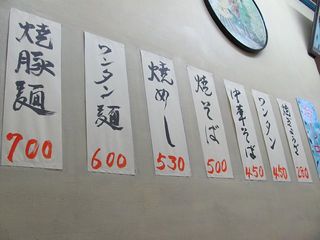 焼豚麺
700
ワンタン麺
600
焼めし
530
焼そば
500
中華そば
450
ワンタン
450
焼ぎょうざ
250